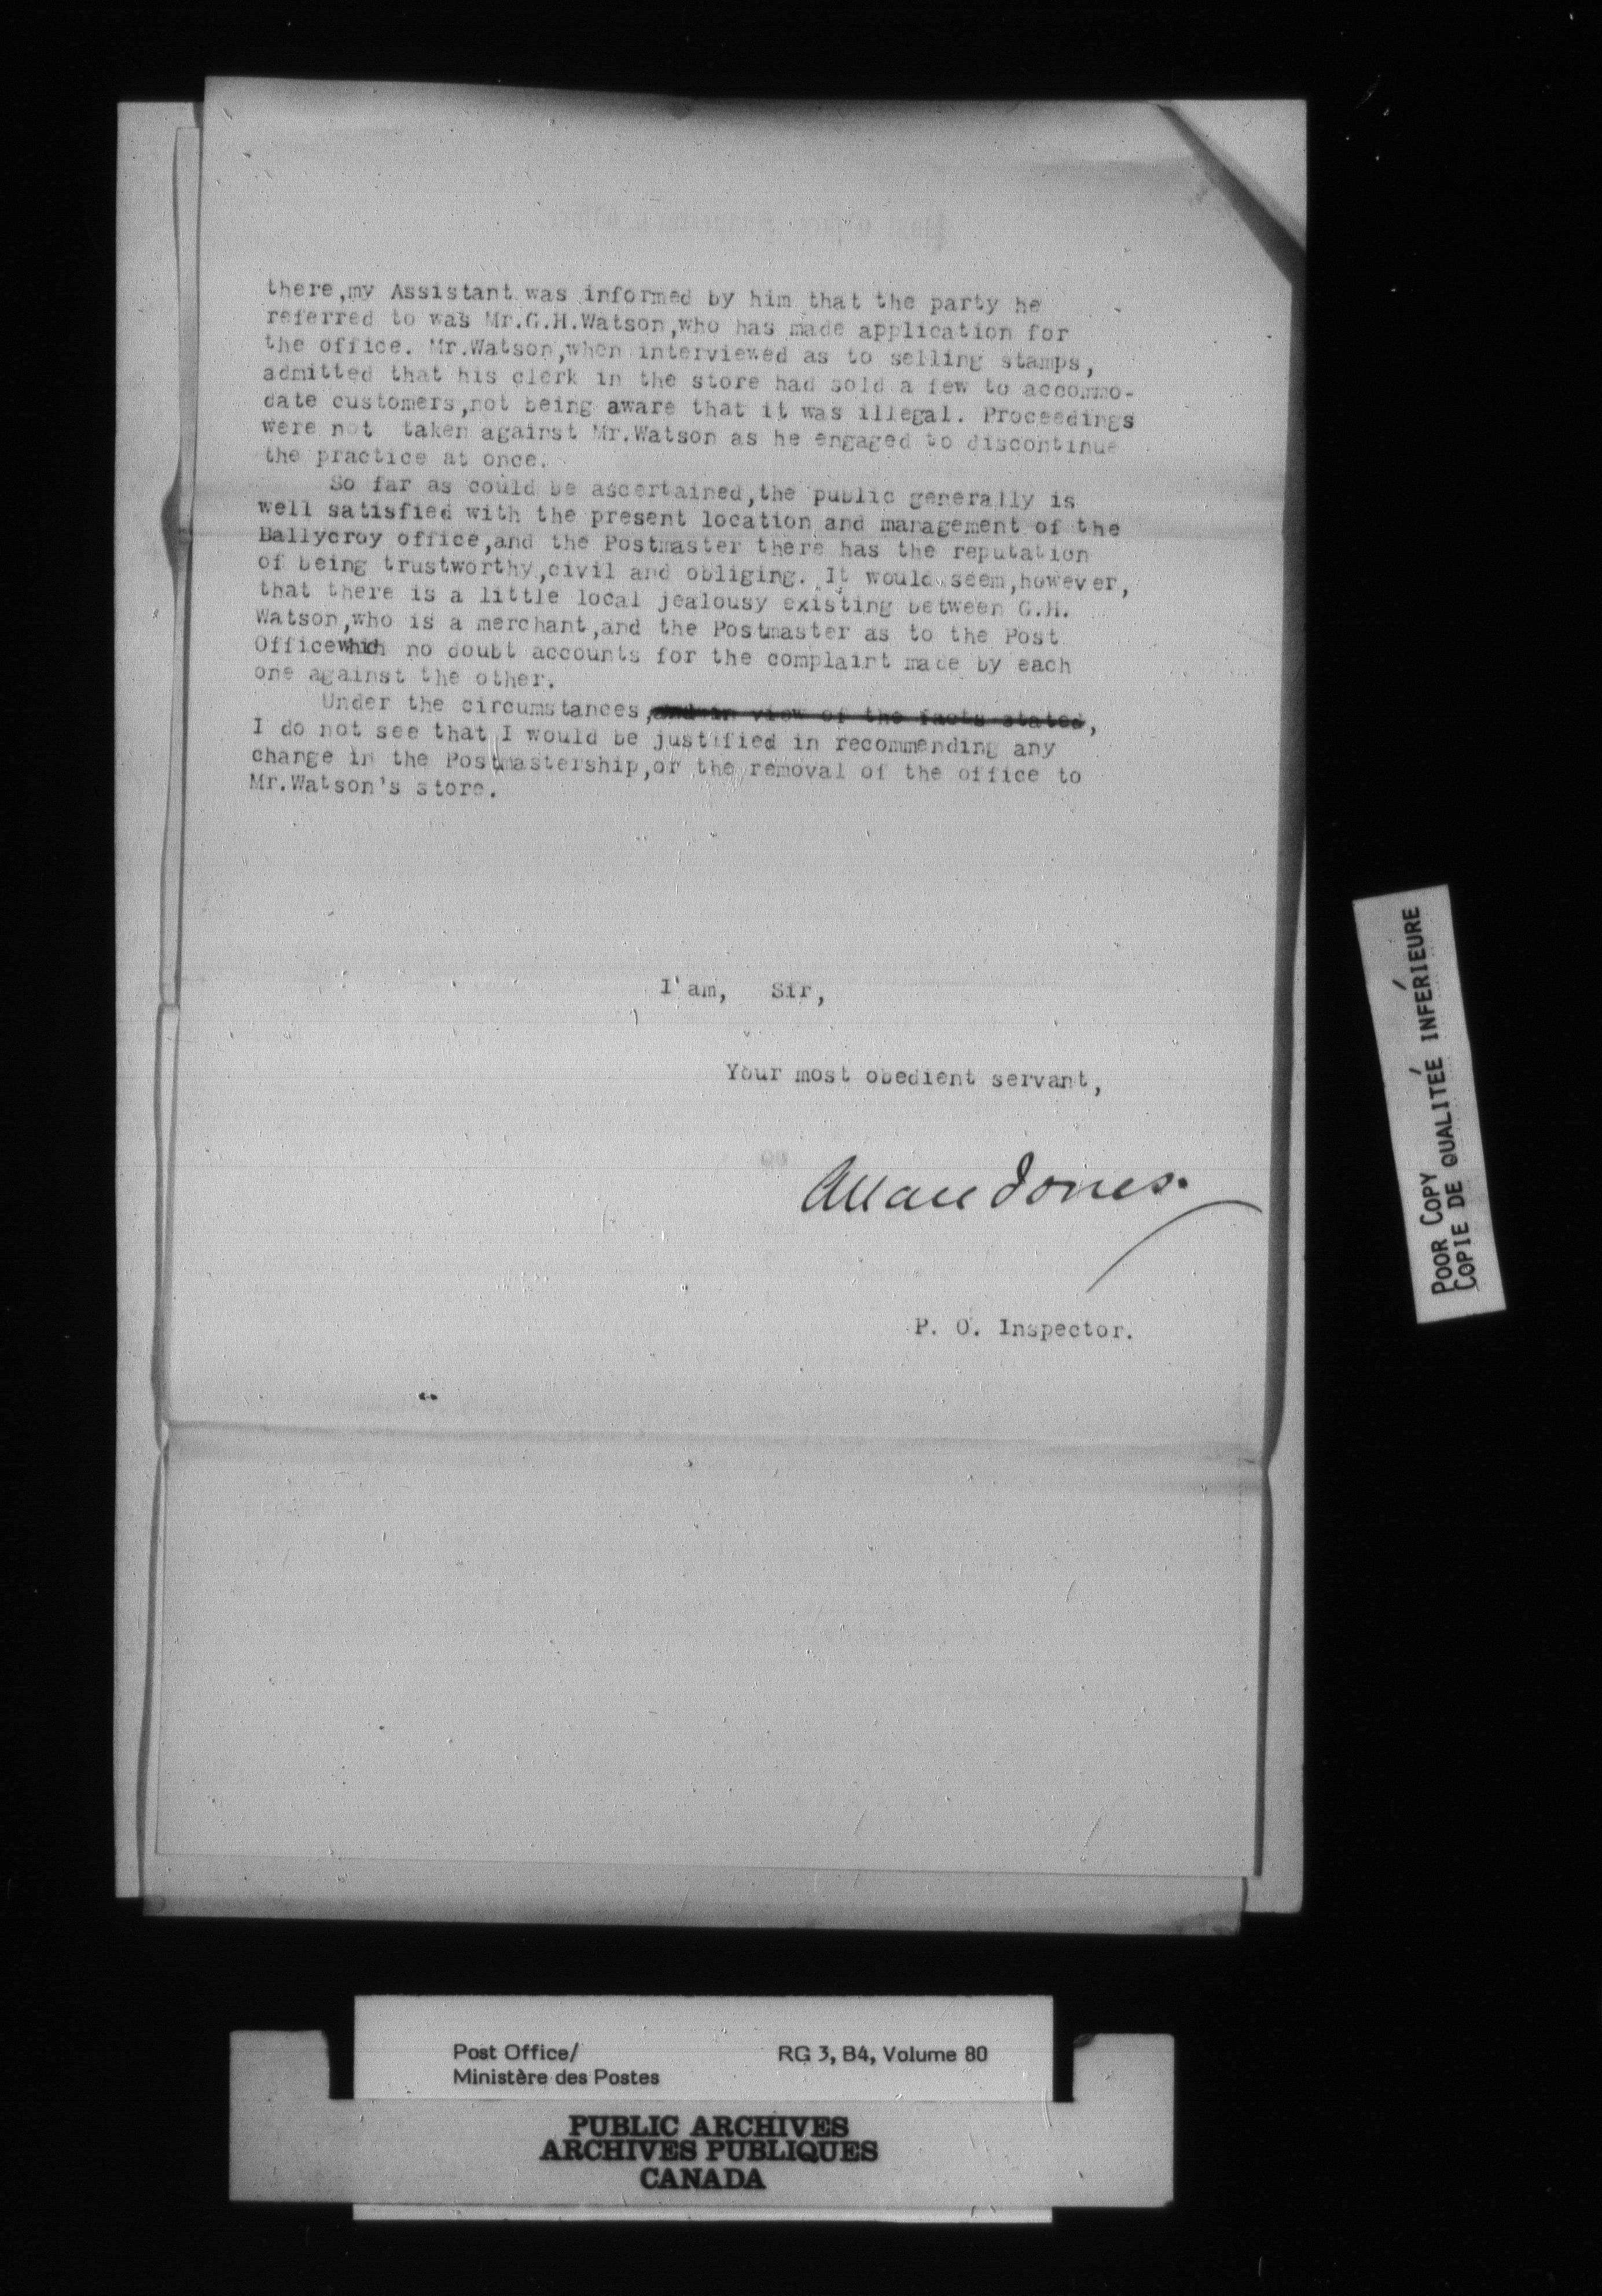 there,my Assistant was informed by him that the party he
referred to was Mr.G.H.Watson,who has made application for
the office. Mr.Watson,when interviewed as to selling stamps,
admitted that his clerk in the store had sold a few to accommo-
date customers,not being aware that it was illegal. Proceedings
were not taken against Mr.Watson as he engaged to discontinue
the practice at once.
So far as could be ascertained,the public generally is
well satisfied with the present location and management of the
Ballycroy office,and the Postmaster there has the reputation
of being trustworthy,civil and obliging. It would seem,however,
that there is a little local jealousy existing between G.H.
Watson,who is a merchant,and the Postmaster as to the Post
Office which no doubt accounts for the complaint made by each
one against the other.
Under the circumstances,and in view of the facts stated,
I do not see that I would be justified in recommending any
change in the Postmastership,or the removal of the office to
Mr.Watson's store.
I am, Sir,
Your most obedient servant,
Allan Jones.
P. O. Inspector.
POOR COPY
COPIE DE QUALITÉE INFÉRIEURE
Post Office/ RG 3, B4, Volume 80
Ministère des Postes
PUBLIC ARCHIVES
ARCHIVES PUBLIQUES
CANADA